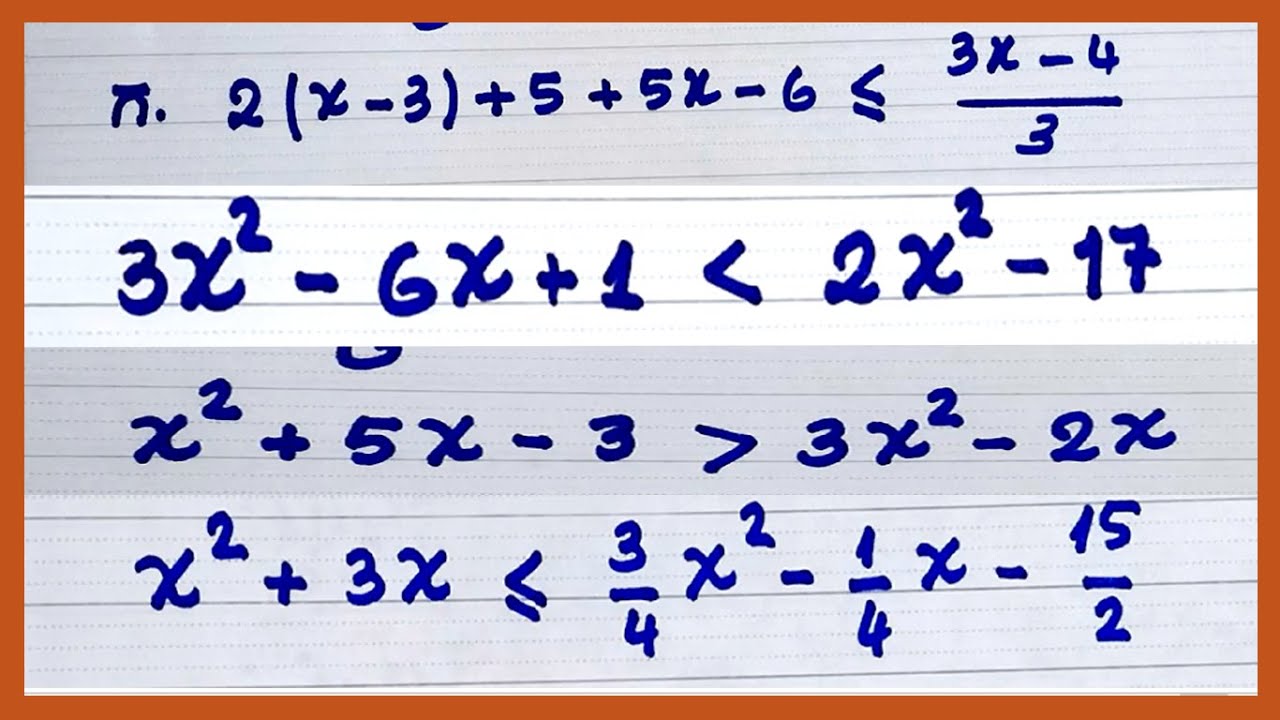 π. 2(x-3)+5+5x-6 ≤ \frac{3x-4}{3}
3x² - 6x + 1 < 2x² - 17
x² + 5x - 3 > 3x² - 2x
x² + 3x ≤ \frac{3}{4}x² - \frac{1}{4}x - \frac{15}{2}